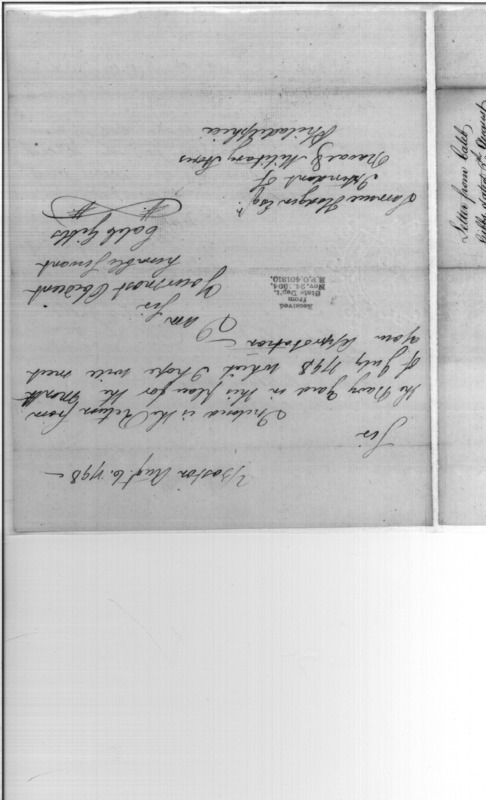 Boston Augt. 6. 1798 —
Sir
Inclosed is the Return from
the Navy Yard in this place for the Month
of July 1798 which I hope will meet
your Approbation —
I am
Sir
Your most Obedient
humble Servant
Caleb Gibbs
Samuel Hodgdon Esqr.
Intendant of
Naval & Military Stores
Philadelphia
Received
from
State Dep't.
Nov. 24, 1894,
R.P.O. 401810.
Letter from Caleb
Gibbs dated 6th August